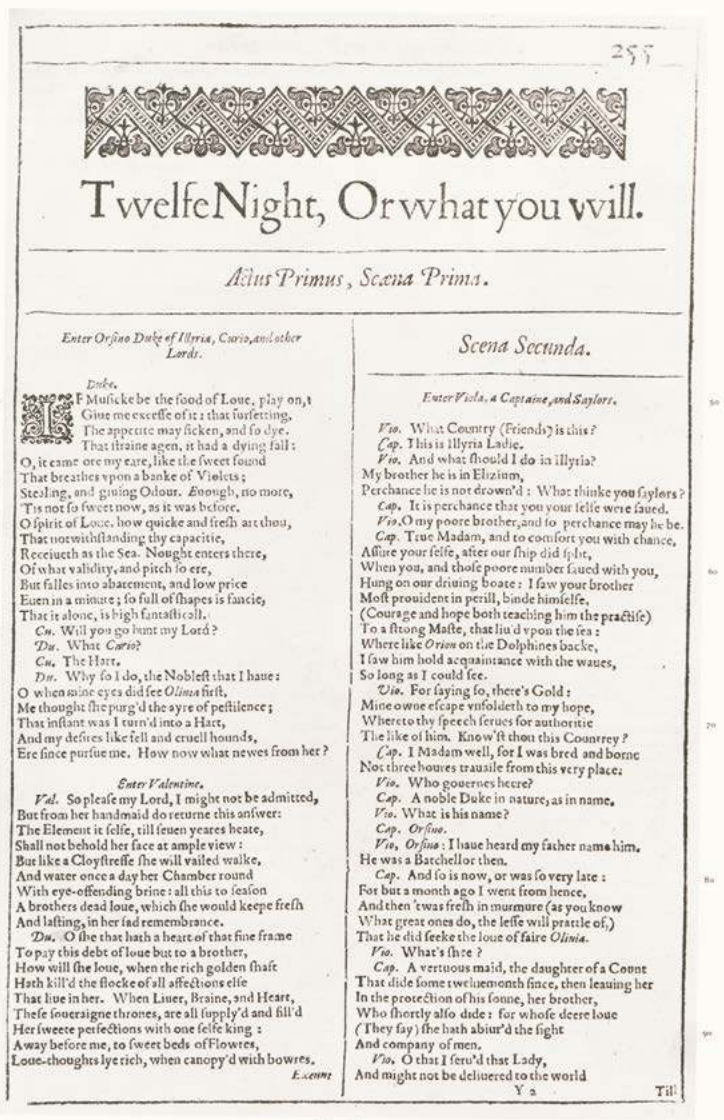 255
TvvelfeNight, Or vvhat you vvill.
Actus Primus, Scæna Prima.
Enter Orſino Duke of Illyria, Curio, and other
Lords.
Duke.
IF Muſicke be the food of Loue, play on,
Giue me exceſſe of it: that ſurfetting,
The appetite may ſicken, and ſo dye.
That ſtraine agen, it had a dying fall:
O, it came ore my eare, like the ſweet ſound
That breathes vpon a banke of Violets;
Stealing, and giuing Odour. Enough, no more,
'Tis not ſo ſweet now, as it was before.
O ſpirit of Loue, how quicke and freſh art thou,
That notwithſtanding thy capacitie,
Receiueth as the Sea. Nought enters there,
Of what validity, and pitch ſo ere,
But falles into abatement, and low price
Euen in a minute; ſo full of ſhapes is fancie,
That it alone, is high fantaſticall.
Cu. Will you go hunt my Lord?
Du. What Curio?
Cu. The Hart.
Du. Why ſo I do, the Nobleſt that I haue:
O when mine eyes did ſee Oliuia firſt,
Me thought ſhe purg'd the ayre of peſtilence;
That inſtant was I turn'd into a Hart,
And my deſires like fell and cruell hounds,
Ere ſince purſue me. How now what newes from her?
Enter Valentine.
Val. So pleaſe my Lord, I might not be admitted,
But from her handmaid do returne this anſwer:
The Element it ſelfe, till ſeuen yeares heate,
Shall not behold her face at ample view:
But like a Cloyſtreſſe ſhe will vailed walke,
And water once a day her Chamber round
With eye-offending brine: all this to ſeaſon
A brothers dead loue, which ſhe would keepe freſh
And laſting, in her ſad remembrance.
Du. O ſhe that hath a heart of that fine frame
To pay this debt of loue but to a brother,
How will ſhe loue, when the rich golden ſhaft
Hath kill'd the flocke of all affections elſe
That liue in her. When Liuer, Braine, and Heart,
Theſe ſoueraigne thrones, are all ſupply'd and fill'd
Her ſweete perfections with one ſelfe king:
Away before me, to ſweet beds of Flowres,
Loue-thoughts lye rich, when canopy'd with bowres.
Exeunt
Scena Secunda.
Enter Viola, a Captaine, and Saylors.
Vio. What Country (Friends) is this?
Cap. This is Illyria Ladie.
Vio. And what ſhould I do in Illyria?
My brother he is in Elizium,
Perchance he is not drown'd: What thinke you ſaylors?
Cap. It is perchance that you your ſelfe were ſaued.
Vio. O my poore brother, and ſo perchance may he be.
Cap. True Madam, and to comfort you with chance,
Aſſure your ſelfe, after our ſhip did ſplit,
When you, and thoſe poore number ſaued with you,
Hung on our driuing boate: I ſaw your brother
Moſt prouident in perill, binde himſelfe,
(Courage and hope both teaching him the practiſe)
To a ſtrong Maſte, that liu'd vpon the ſea:
Where like Orion on the Dolphines backe,
I ſaw him hold acquaintance with the waues,
So long as I could ſee.
Vio. For ſaying ſo, there's Gold:
Mine owne eſcape vnfoldeth to my hope,
Whereto thy ſpeech ſerues for authoritie
The like of him. Know'ſt thou this Countrey?
Cap. I Madam well, for I was bred and borne
Not three houres trauaile from this very place:
Vio. Who gouernes heere?
Cap. A noble Duke in nature, as in name.
Vio. What is his name?
Cap. Orſino.
Vio. Orſino: I haue heard my father name him.
He was a Batchellor then.
Cap. And ſo is now, or was ſo very late:
For but a month ago I went from hence,
And then 'twas freſh in murmure (as you know
What great ones do, the leſſe will prattle of,)
That he did ſeeke the loue of faire Oliuia.
Vio. What's ſhee?
Cap. A vertuous maid, the daughter of a Count
That dide ſome tweluemonth ſince, then leauing her
In the protection of his ſonne, her brother,
Who ſhortly alſo dide: for whoſe deere loue
(They ſay) ſhe hath abiur'd the ſight
And company of men.
Vio. O that I ſeru'd that Lady,
And might not be deliuered to the world
Y 2
Till
50
60
70
80
90